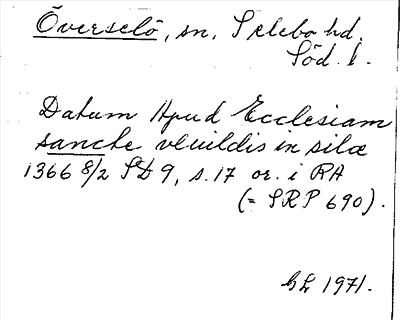 Överselö, sn, Selebo hd.
Söd. l.
Datum Apud Ecclesiam
sancte vluildis in siloe
1366 8/2 SD 9, s. 17 or. i RA
(= SRP 690).
GL 1971.